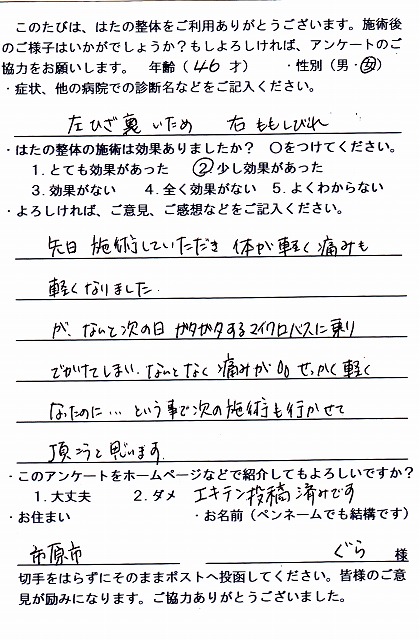 このたびは、はたの整体をご利用ありがとうございます。施術後
のご様子はいかがでしょうか？もしよろしければ、アンケートのご
協力をお願いします。　年齢（46 才）　・性別（男・女）
・症状、他の病院での診断名などをご記入ください。
左ひざ裏 いため　右ももしびれ
・はたの整体の施術は効果ありましたか？　〇をつけてください。
1. とても効果があった　②少し効果があった
3. 効果がない　4. 全く効果がない　5. よくわからない
・よろしければ、ご意見、ご感想などをご記入ください。
先日 施術していただき 体が軽く痛みも
軽くなりました.
が、なんと次の日 ガタガタするマイクロバスに乗り
でかけてしまい、なんとなく痛みが。。せっかく軽く
なったのに… という事で次の施術も行かせて
頂こうと思います.
・このアンケートをホームページなどで紹介してもよろしいですか？
1. 大丈夫　2. ダメ　エキテン投稿済みです
・お住まい　・お名前（ペンネームでも結構です）
市原市　ぐら　様
切手をはらずにそのままポストへ投函してください。皆様のご意
見が励みになります。ご協力ありがとうございました。